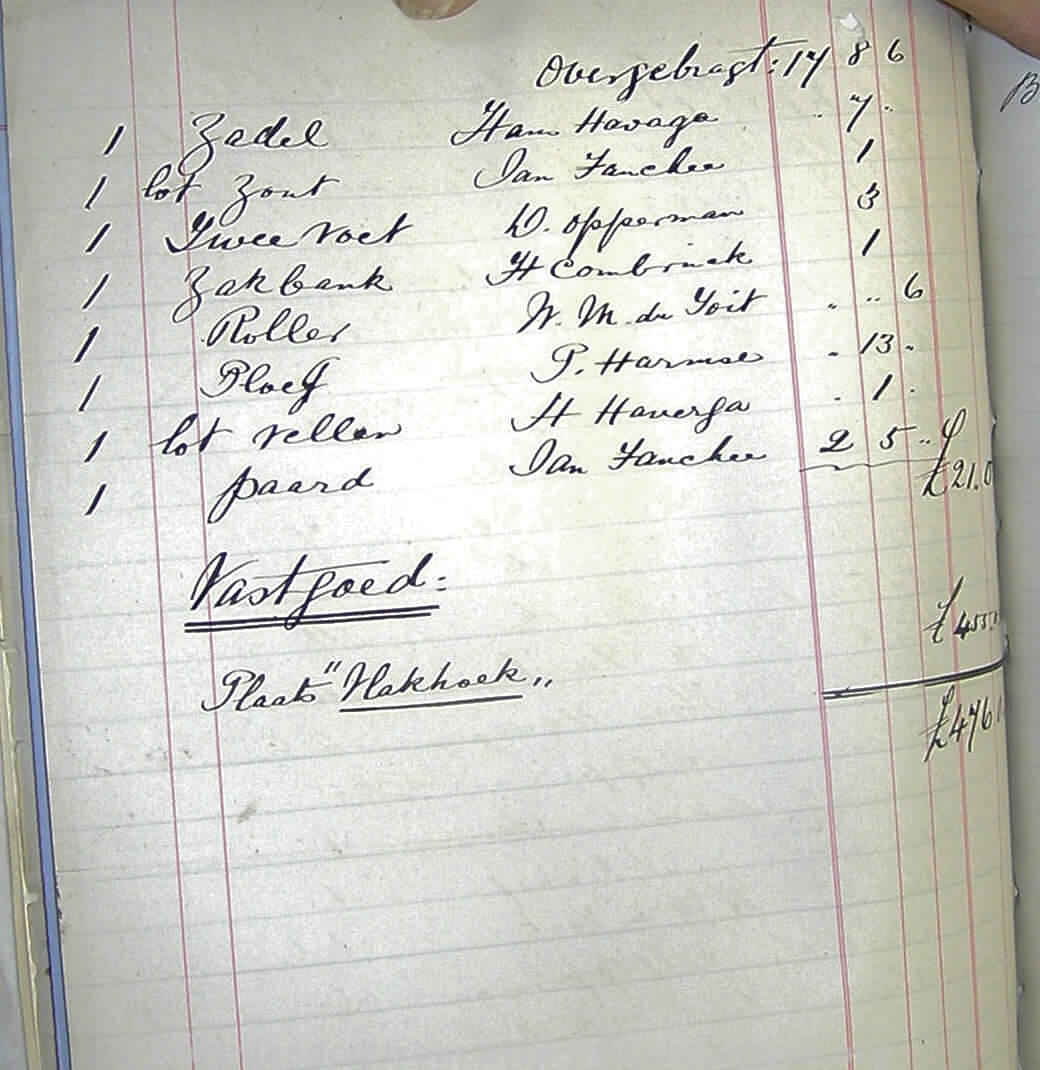 Overgebragt: 17 8 6
1 Zadel Ham Havaga . 7 .
1 lot Zout Jan Fanchee 1
1 Twee voet D. Opperman 3
1 Zakbank H Combrinck 1
1 Roller W. M. du Toit . .. 6
1 Ploeg P. Harmse . 13 .
1 lot vellen H Haverga . 1 .
1 paard Jan Fanchee 2 5 ..
£21.0
Vastgoed:
£455
Plaats "Hakhoek„
£476